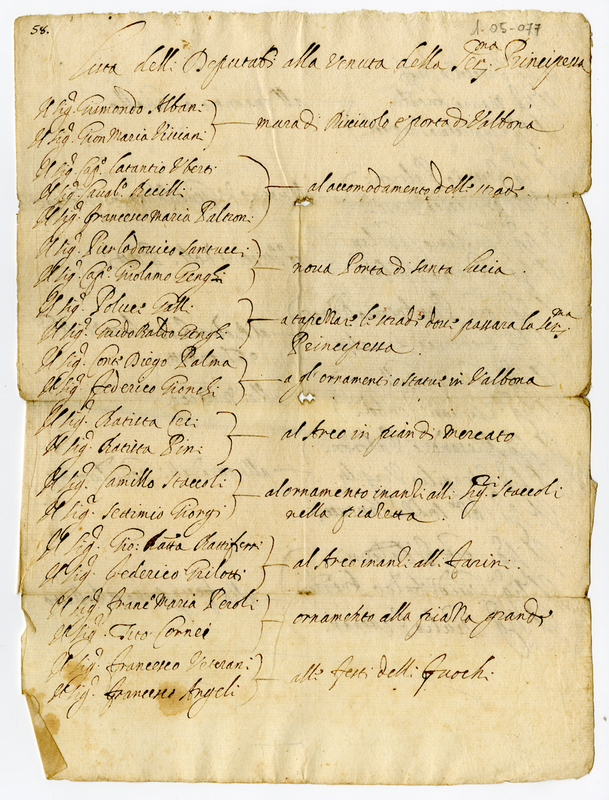 58.
1-05-077
Lista delli Deputati alla venuta della Ser.ma Principessa
Il Sig.r Guimondo Albani
Il Sig.r Gion Maria Viviani
mura di Risciuolo e porta di Valbona
Il Sig.r Cap.o Latantio Uberti
Il Sig.r Caval.o Recilli
Il Sig.r Francesco Maria Palcioni
al accomodamento delle strade.
Il Sig.r Pier Lodovico Santucci
Il Sig.r Cap.o Girolamo Genghi
nova Porta di santa Lucia.
Il Sig.r Polvee Galli
Il Sig.r Guido Baldo Genghi
a tapellare le stradi dove passara la Ser.ma
Principessa.
Il Sig.r Conte Diego Palma
Il Sig.r Federico Gionchi
a gl'ornamenti o statue in Valbona
Il Sig.r Batista Ceci
Il Sig.r Batista Pini
al Arco in pian di Mercato
Il Sig.r Camillo Staccoli
Il Sig.r Settimio Giorgi
al ornamento inanzi alli Sig.ri Staccoli
nella piazzetta.
Il Sig.r Gio: Batta Battiferri
Il Sig.r Federico Grilotti
al Arco inanzi alli Farini.
Il Sig.r Franc.o Maria Peroli
Il Sig.r Tito Cornei
ornamento alla piazza grande
Il Sig.r Francesco Veterani
Il Sig.r Francesco Angeli
alle festi delli fuochi.